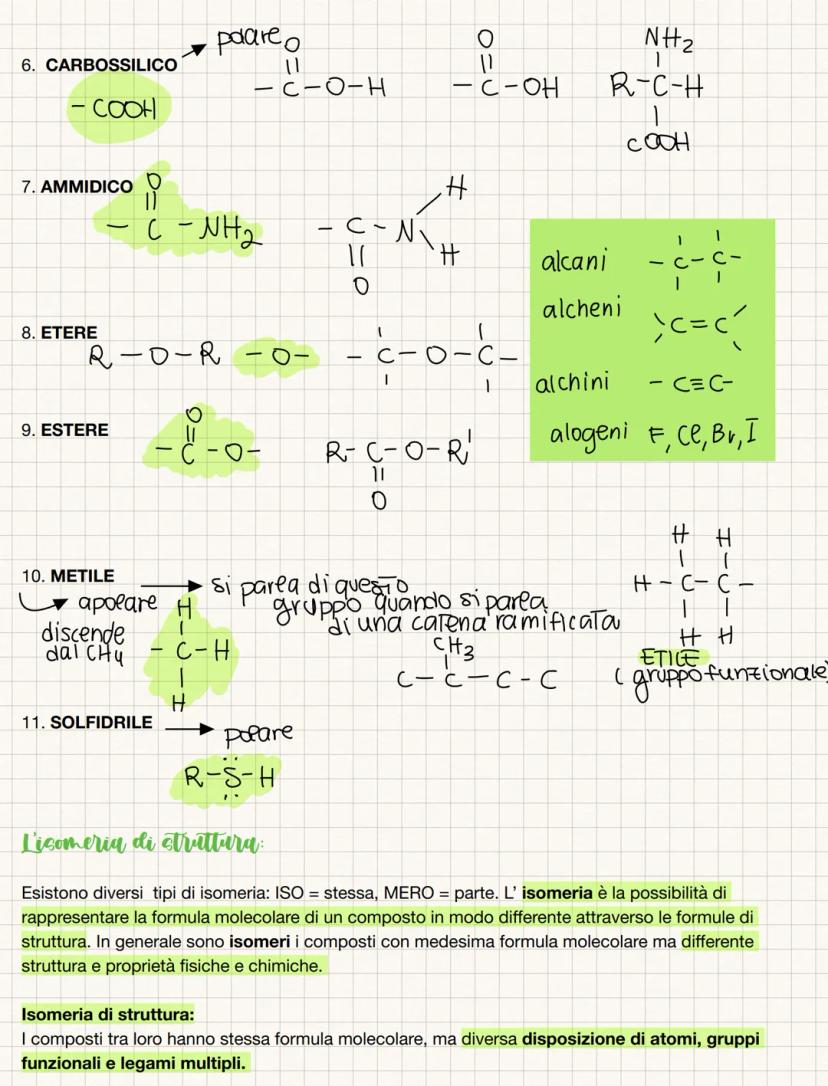 6. CARBOSSILICO → polare
- COOH
O
||
- C - O - H
O
||
- C - OH
NH2
|
R - C - H
|
COOH
7. AMMIDICO
O
||
- C - NH2
H
- C - N
|| \ H
O
8. ETERE
R - O - R
- O -
- C - O - C -
9. ESTERE
O
||
- C - O -
R - C - O - R'
||
O
alcani - C - C -
alcheni C = C
alchini - C ≡ C -
alogeni F, Cl, Br, I
10. METILE → si parla di questo
gruppo quando si parla
di una catena ramificata
apolare
discende
dal CH4
H
|
- C - H
|
H
CH3
|
C - C - C - C
H H
| |
H - C - C -
| |
H H
ETILE
(gruppo funzionale)
11. SOLFIDRILE → polare
R - S - H
L'isomeria di struttura:
Esistono diversi tipi di isomeria: ISO = stessa, MERO = parte. L' isomeria è la possibilità di
rappresentare la formula molecolare di un composto in modo differente attraverso le formule di
struttura. In generale sono isomeri i composti con medesima formula molecolare ma differente
struttura e proprietà fisiche e chimiche.
Isomeria di struttura:
I composti tra loro hanno stessa formula molecolare, ma diversa disposizione di atomi, gruppi
funzionali e legami multipli.